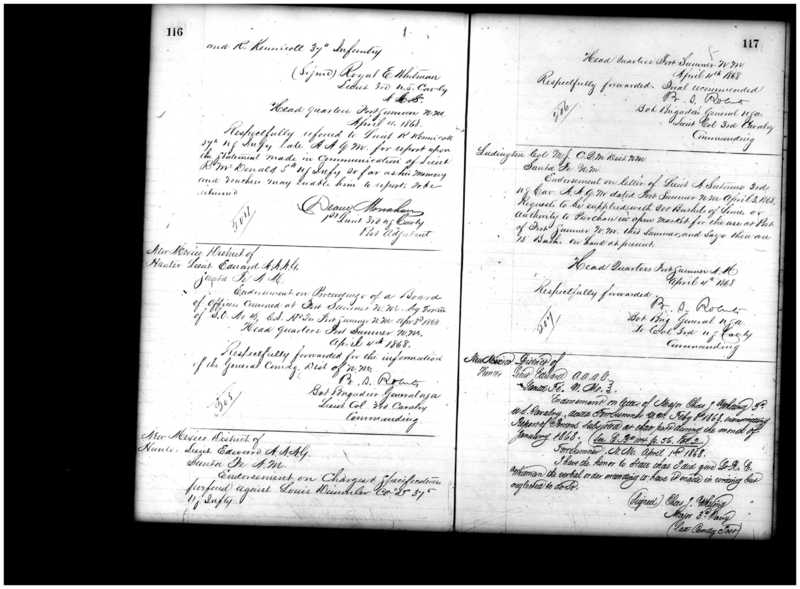 116
and R. Kennicott 37th Infantry
(Signed) Royal E. Whitman
Lieut 3rd U.S. Cav'ly
Head Quarters Fort Sumner N.M.
April 4th 1868.
Respectfully refered to Lieut R. Kennicott
37th U.S. Inf'y late A.A.Q.M. for report upon
the statement made in communication of Lieut
R. McDonald 5th U.S. Inf'y so far as his memory
and may enable him to report. To be
returned
Deane Monahan
1st Lieut 3rd U.S. Cav'ly
Post Adjutant
New Mexico District of
Hunter Lieut Edward A.A.A.G.
Santa Fe N.M.
Endorsement on Proceedings of a Board
of Officers convened at Fort Sumner N.M. by virtue
of S.O. No Hd. Qrs. Fort Sumner N.M. Apr 1868
Head Quarters Fort Sumner N.M.
April 4th 1868.
Respectfully forwarded for the information
of the General Comdg Dist of N.M.
B. S. Roberts
Bvt Brigadier General U.S.A.
Lieut Col 3rd Cavalry
Commanding
New Mexico District of
Hunter Lieut Edward A.A.A.G.
Santa Fe N.M.
Endorsement on Charges & Specifications
prefered against Louis Co 37th
U.S. Inf'ty
117
Head Quarters Fort Sumner N.M.
April 4th 1868
Respectfully forwarded. Trial recommended
B. S. Roberts
Bvt Brigadier General U.S.A.
Lieut Col 3rd Cavalry
Commanding
Ludington M.I. C.Q.M. Dist N.M.
Santa Fe N.M.
Endorsement on letter of Lieut 3rd
U.S. Cav. A.A.Q.M. dated Fort Sumner N.M. April 3, 1868,
Requests to be supplied with Bushels of Lime or
Authority to Purchase in open market for the use at Post
of Fort Sumner N.M. this Summer, and says there are
15 Bush. on hand at present
Head Quarters Fort Sumner N.M.
April 4th 1868
Respectfully forwarded.
B. S. Roberts
Bvt Brig General U.S.A.
Lt Col 3rd U.S. Cav'ly
Commanding
New Mexico District of
Hunter Lieut Edward A.A.A.G.
Santa Fe N.M.
Endorsement on letter of Major Chas J. Whiting 3rd
U.S. Cavalry, dated Fort Sumner N.M. Feb 1868,
Report of at that post during the month of
January 1868.
Fort Sumner N.M. April 1868.
I have the honor to state that I did give Lt R. E.
Whitman the verbal order to have it made in writing but
neglected to do so.
(Signed) Chas J. Whiting
Major 3rd Cav'y